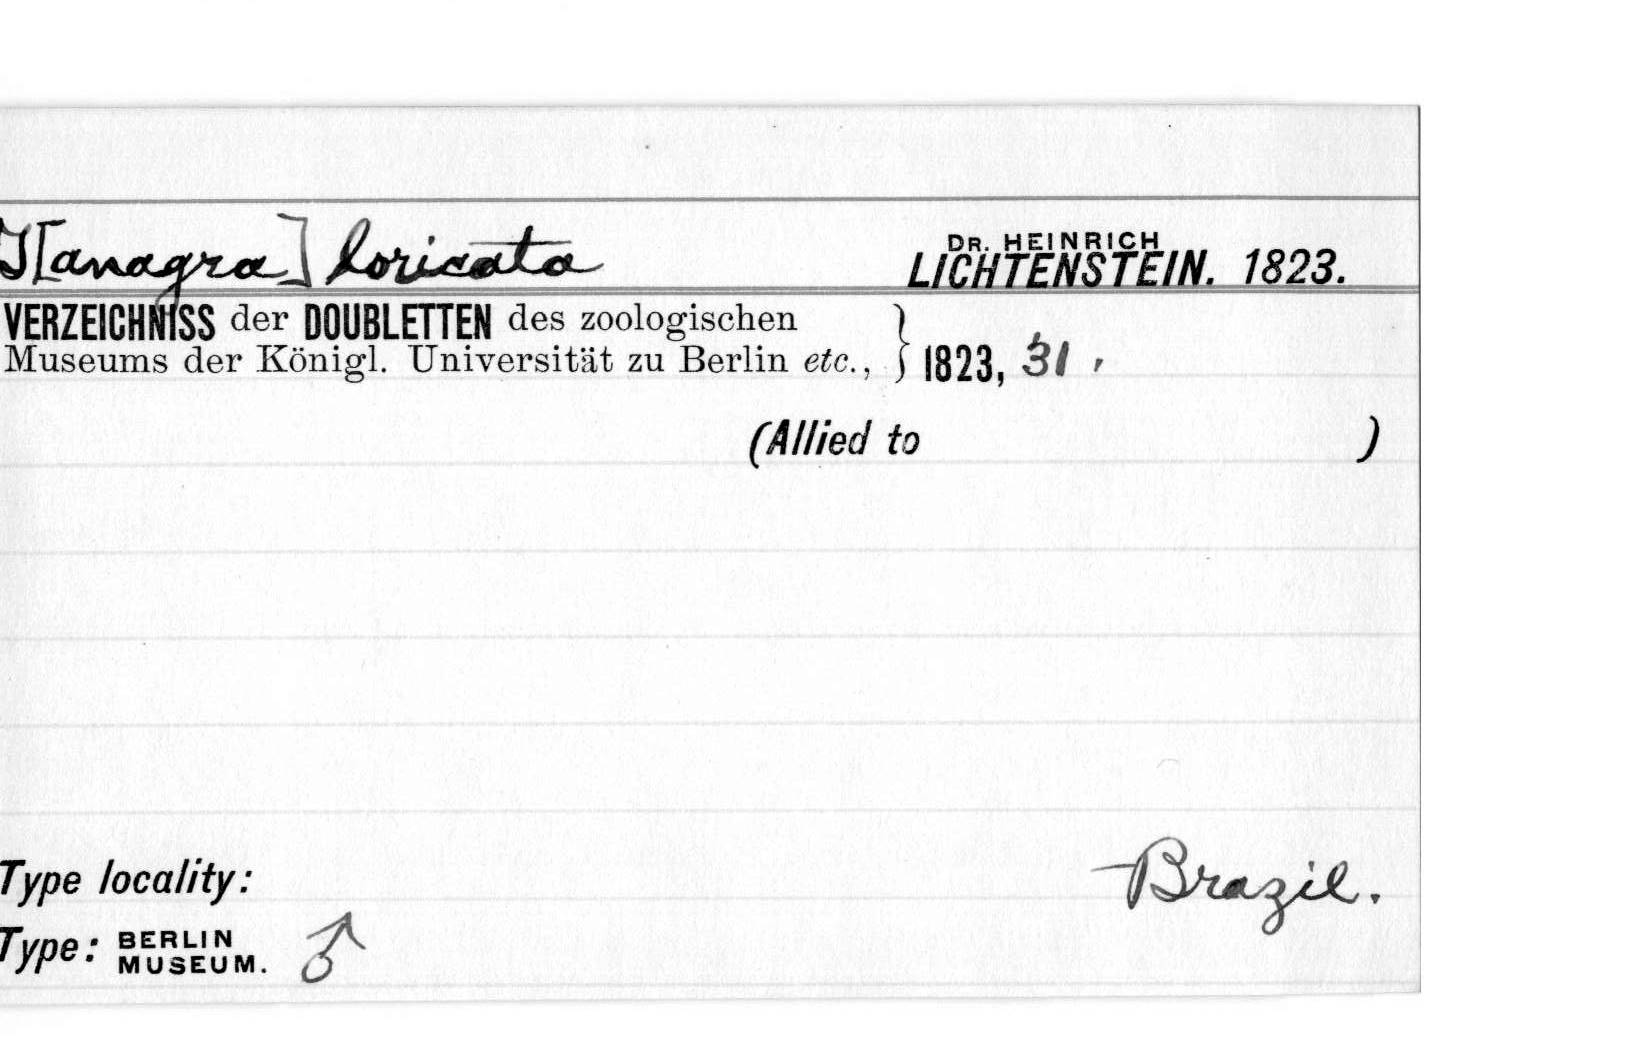 T[anagra] loricata
DR. HEINRICH
LICHTENSTEIN. 1823.
VERZEICHNISS der DOUBLETTEN des zoologischen
Museums der Königl. Universität zu Berlin etc., } 1823, 31.
(Allied to )
Type locality: Brazil.
Type: BERLIN MUSEUM. ♂